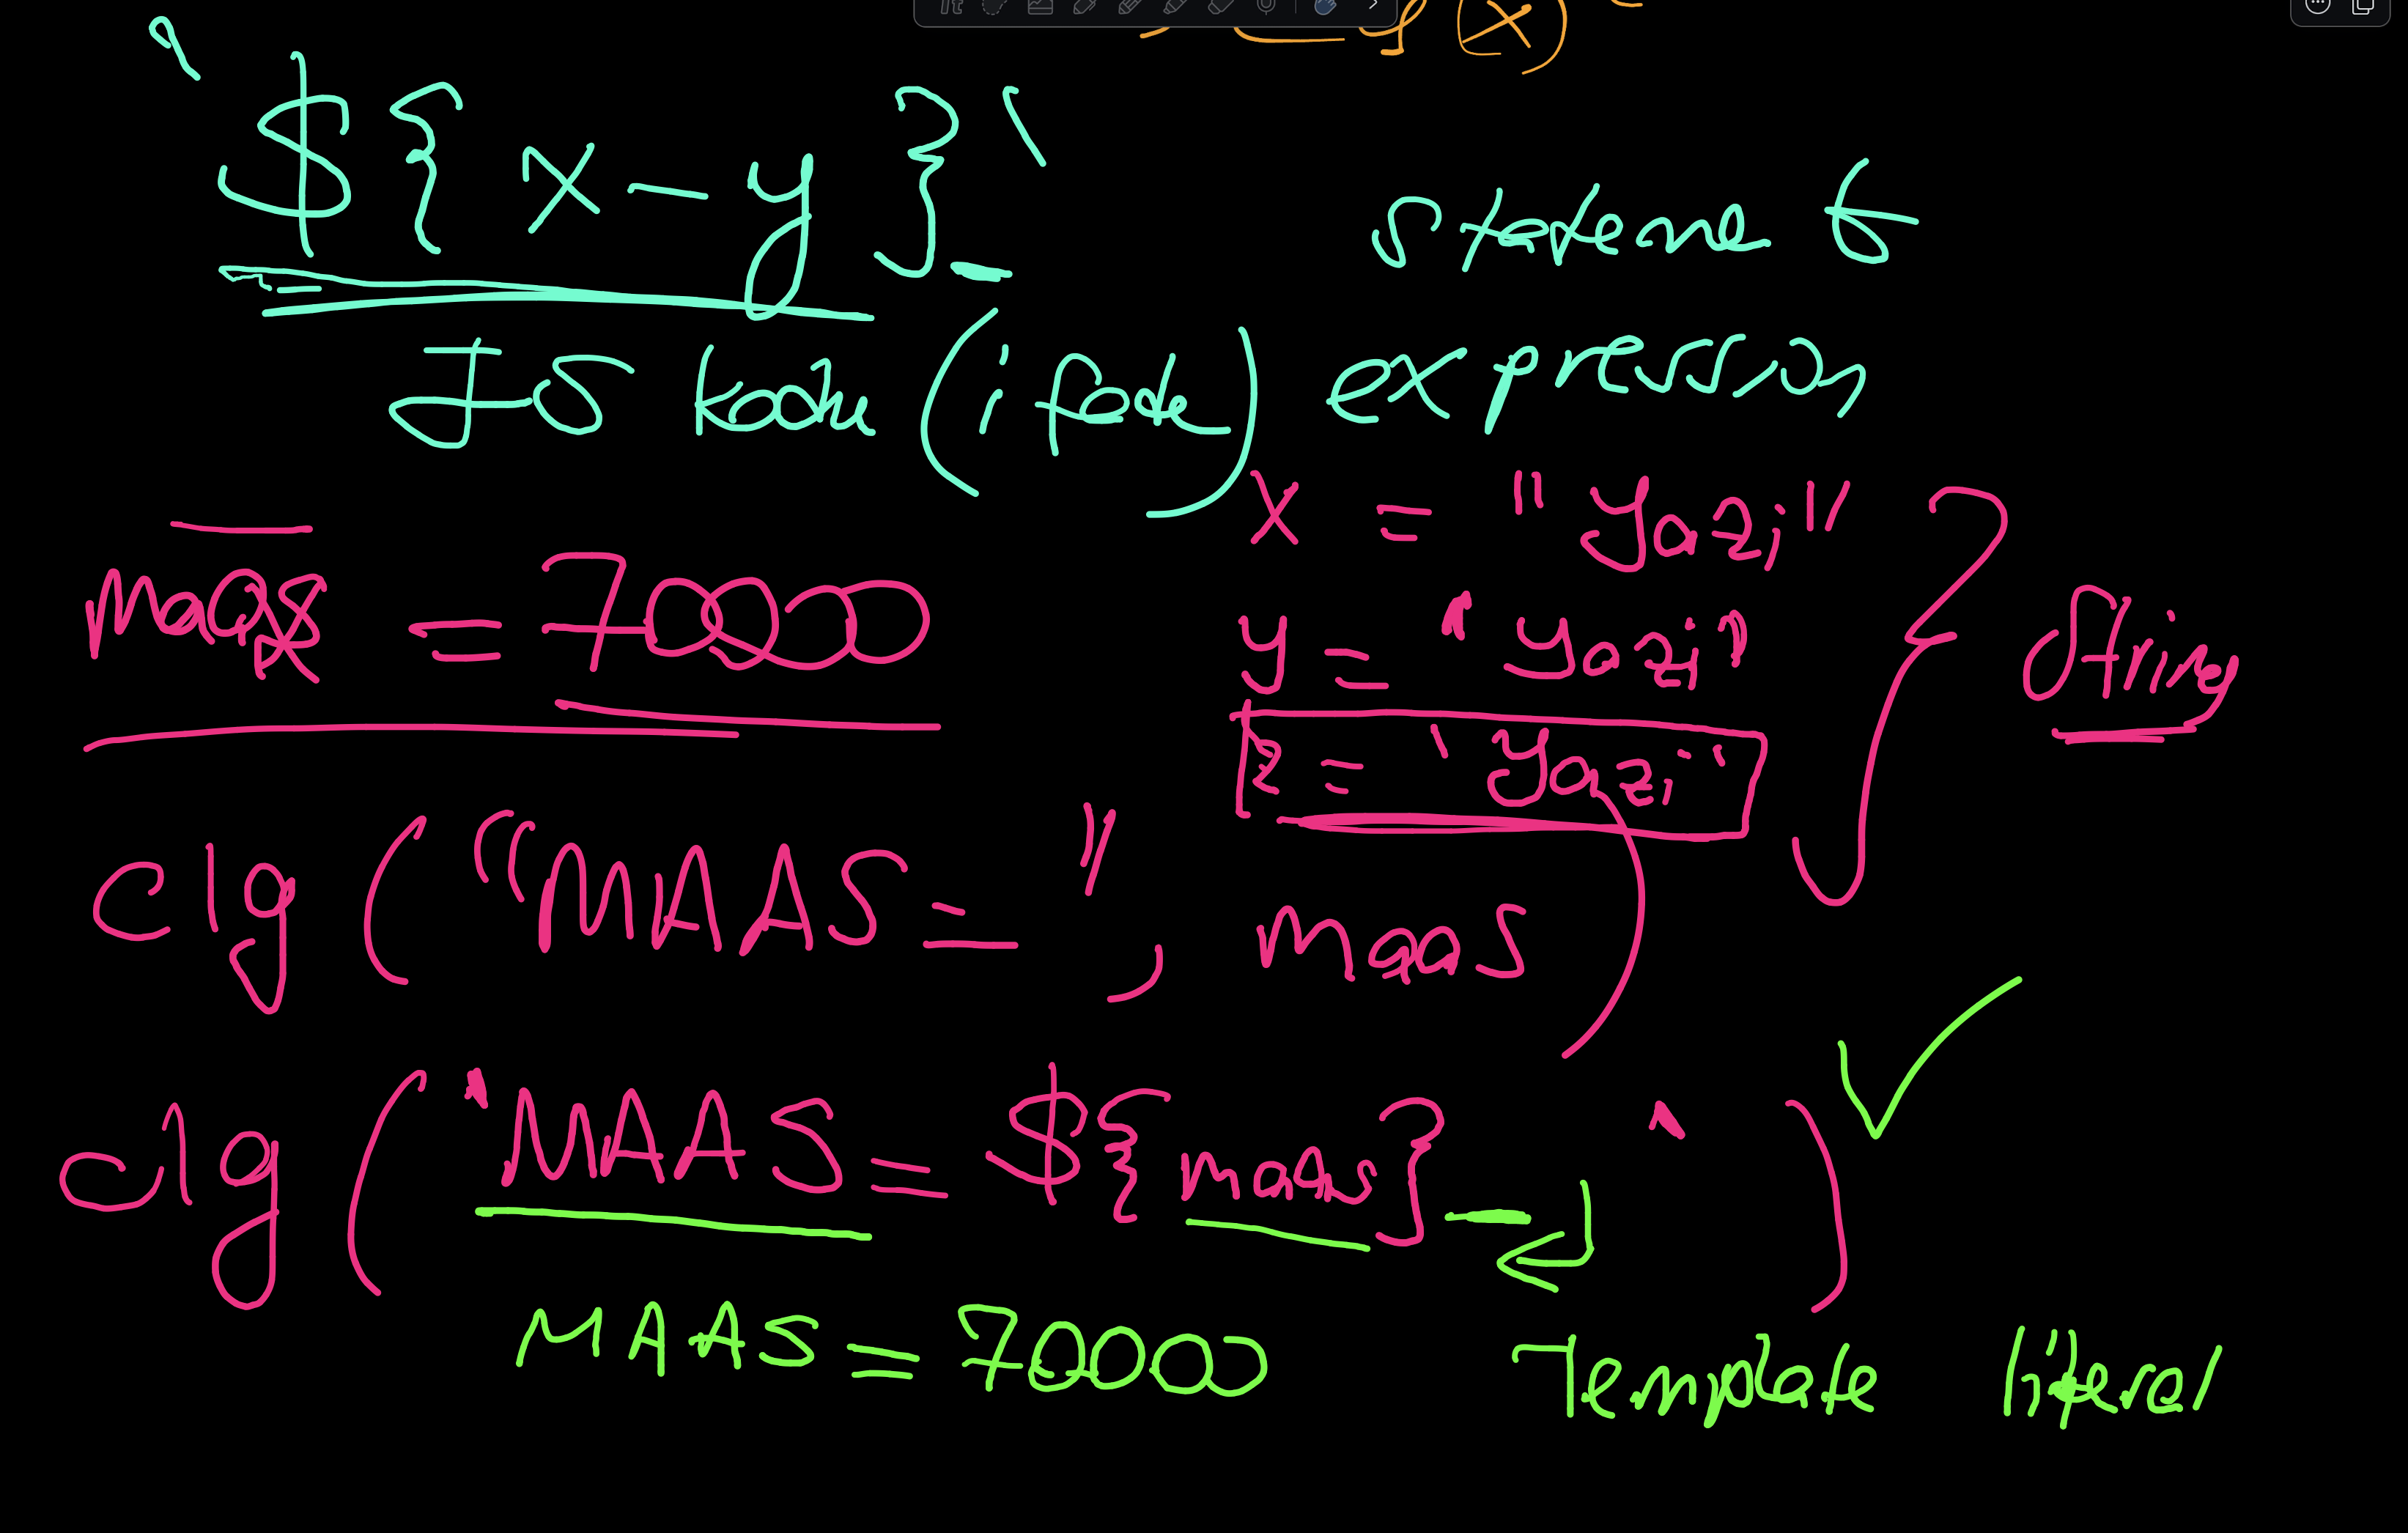 `${ x - y }`
statement
JS kodu (ifade) expression
maaş = 7000
x = "Yazı"
y = 'Yazı'
z = `Yazı`
String
clg ("MAAS=", maas)
clg (`MAAS= ${maas}`)
MAAS = 7000
Template literal